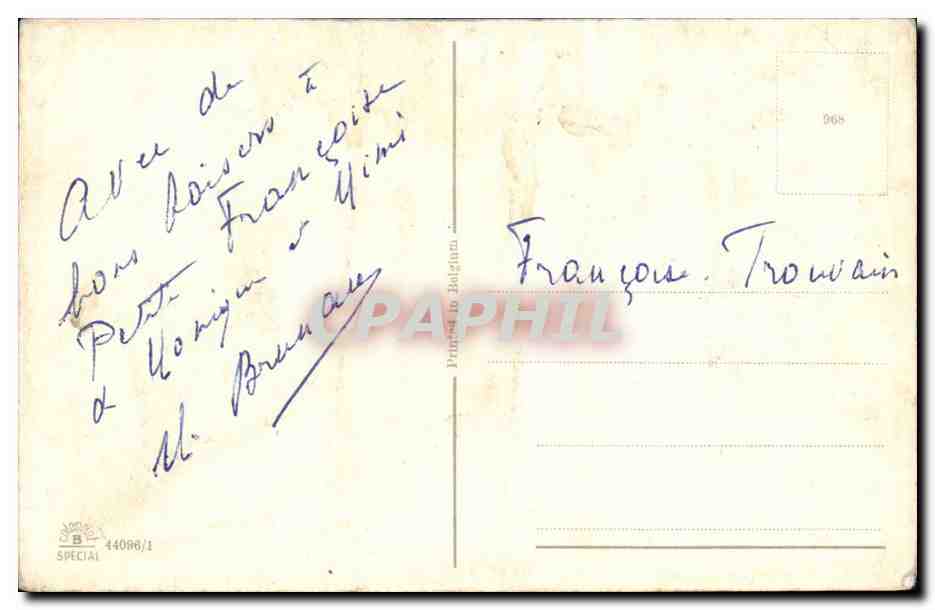 Avec de
bons baisers à
Petite Françoise
à Monique et Mimi
M.
Françoise Trouvain
968
Printed in Belgium
CPAPHIL
B
SPECIAL
44096/1